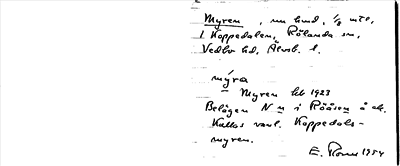 Myren, nu lund, 1/8 mtl,
i Koppedalen, Rölanda sn,
Vedbo hd, Älvsb. l.
mýra
Myren till 1923
Belägen N i Rååsen å ck.
Kallas vanl. Koppedals-
myren.
E. 1954